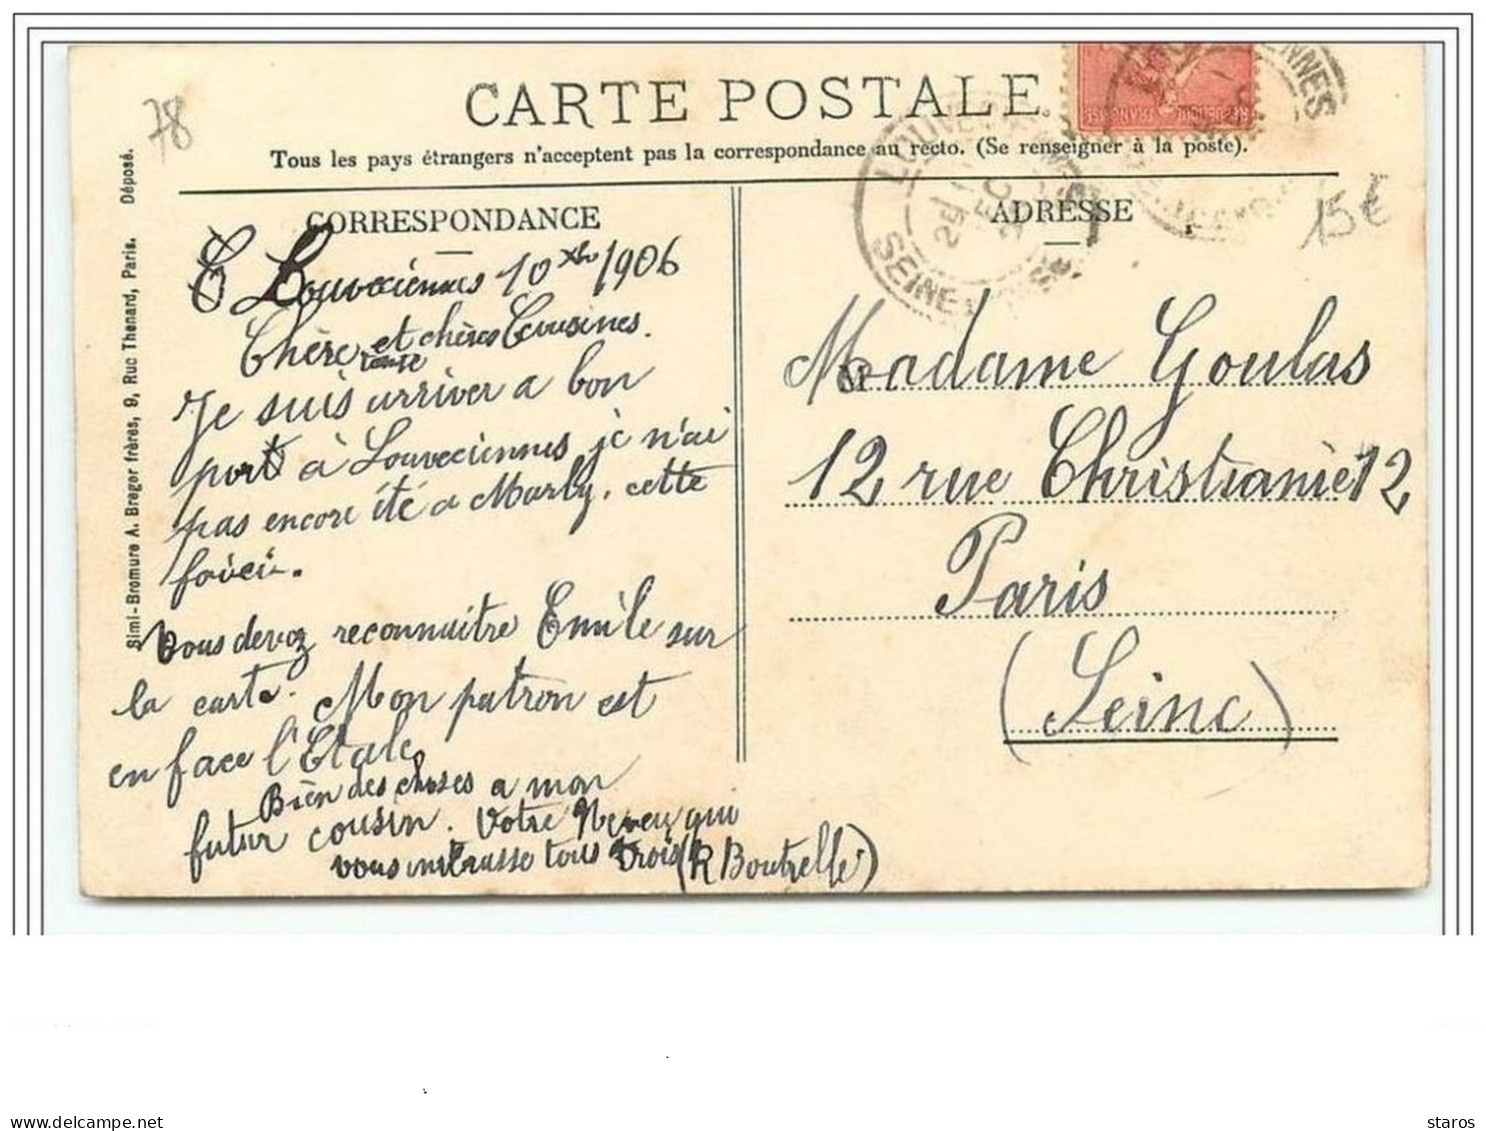 CARTE POSTALE
Tous les pays étrangers n'acceptent pas la correspondance au recto. (Se renseigner à la poste).
78
15€
Simi-Bromure A. Breger frères, 9, Rue Thenard, Paris. Déposé.
CORRESPONDANCE
Louveciennes 10 xbre 1906
Chère tante et chères Cousines.
Je suis arriver a bon
port à Louveciennes je n'ai
pas encore été a Marly. cette
foici.
Vous devez reconnaitre Emile sur
la carte. Mon patron est
en face l'Etale
Bien des choses a mon
futur cousin. Votre Neveu qui
vous embrasse tous trois (R Boutrelle)
ADRESSE
Madame Goulas
12 rue Christianie 12
Paris
(Seine)
REPUBLIQUE FRANÇAISE
SEINE
delcampe.net
staros